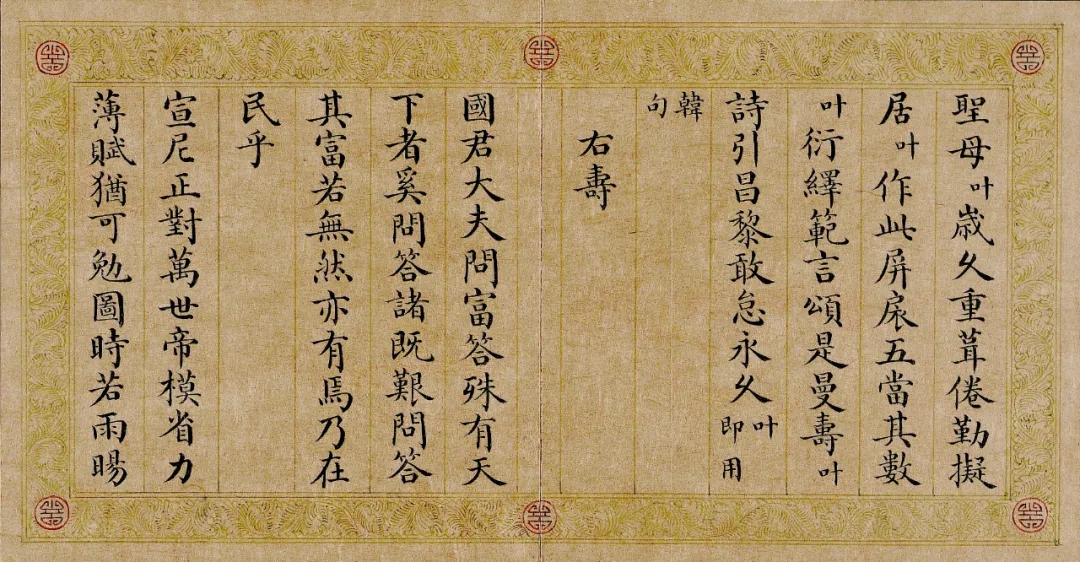 聖母叶歲久重葺倦勤擬
居叶作此屏扆五當其數
叶衍繹範言頌是曼壽叶
詩引昌黎敢怠永久叶即用
韓句
右壽
國君大夫問富答殊有天
下者奚問答諸既艱問答
其富若無然亦有焉乃在
民乎
宣尼正對萬世帝模省力
薄賦猶可勉圖時若雨暘